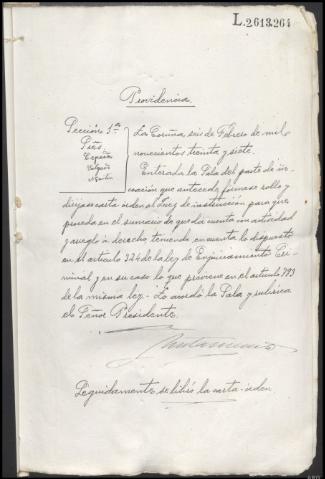 L.2613.264
Providencia.
Sección 1ª
Sres.
España
La Coruña, seis de Febrero de mil
novecientos treinta y siete.
Enterada la Sala del parte de in-
coación que antecede, fórmese rollo y
diríjase carta orden al Juez de instrucción para que
proceda en el sumario de que dá cuenta con actividad
y arreglo á derecho teniendo en cuenta lo dispuesto
en el artículo 324 de la Ley de Enjuiciamiento Cri-
minal y en su caso lo que previene en el artículo 793
de la misma ley.- Lo acordó la Sala y rubrica
el Señor Presidente.
Seguidamente se libró la carta-orden